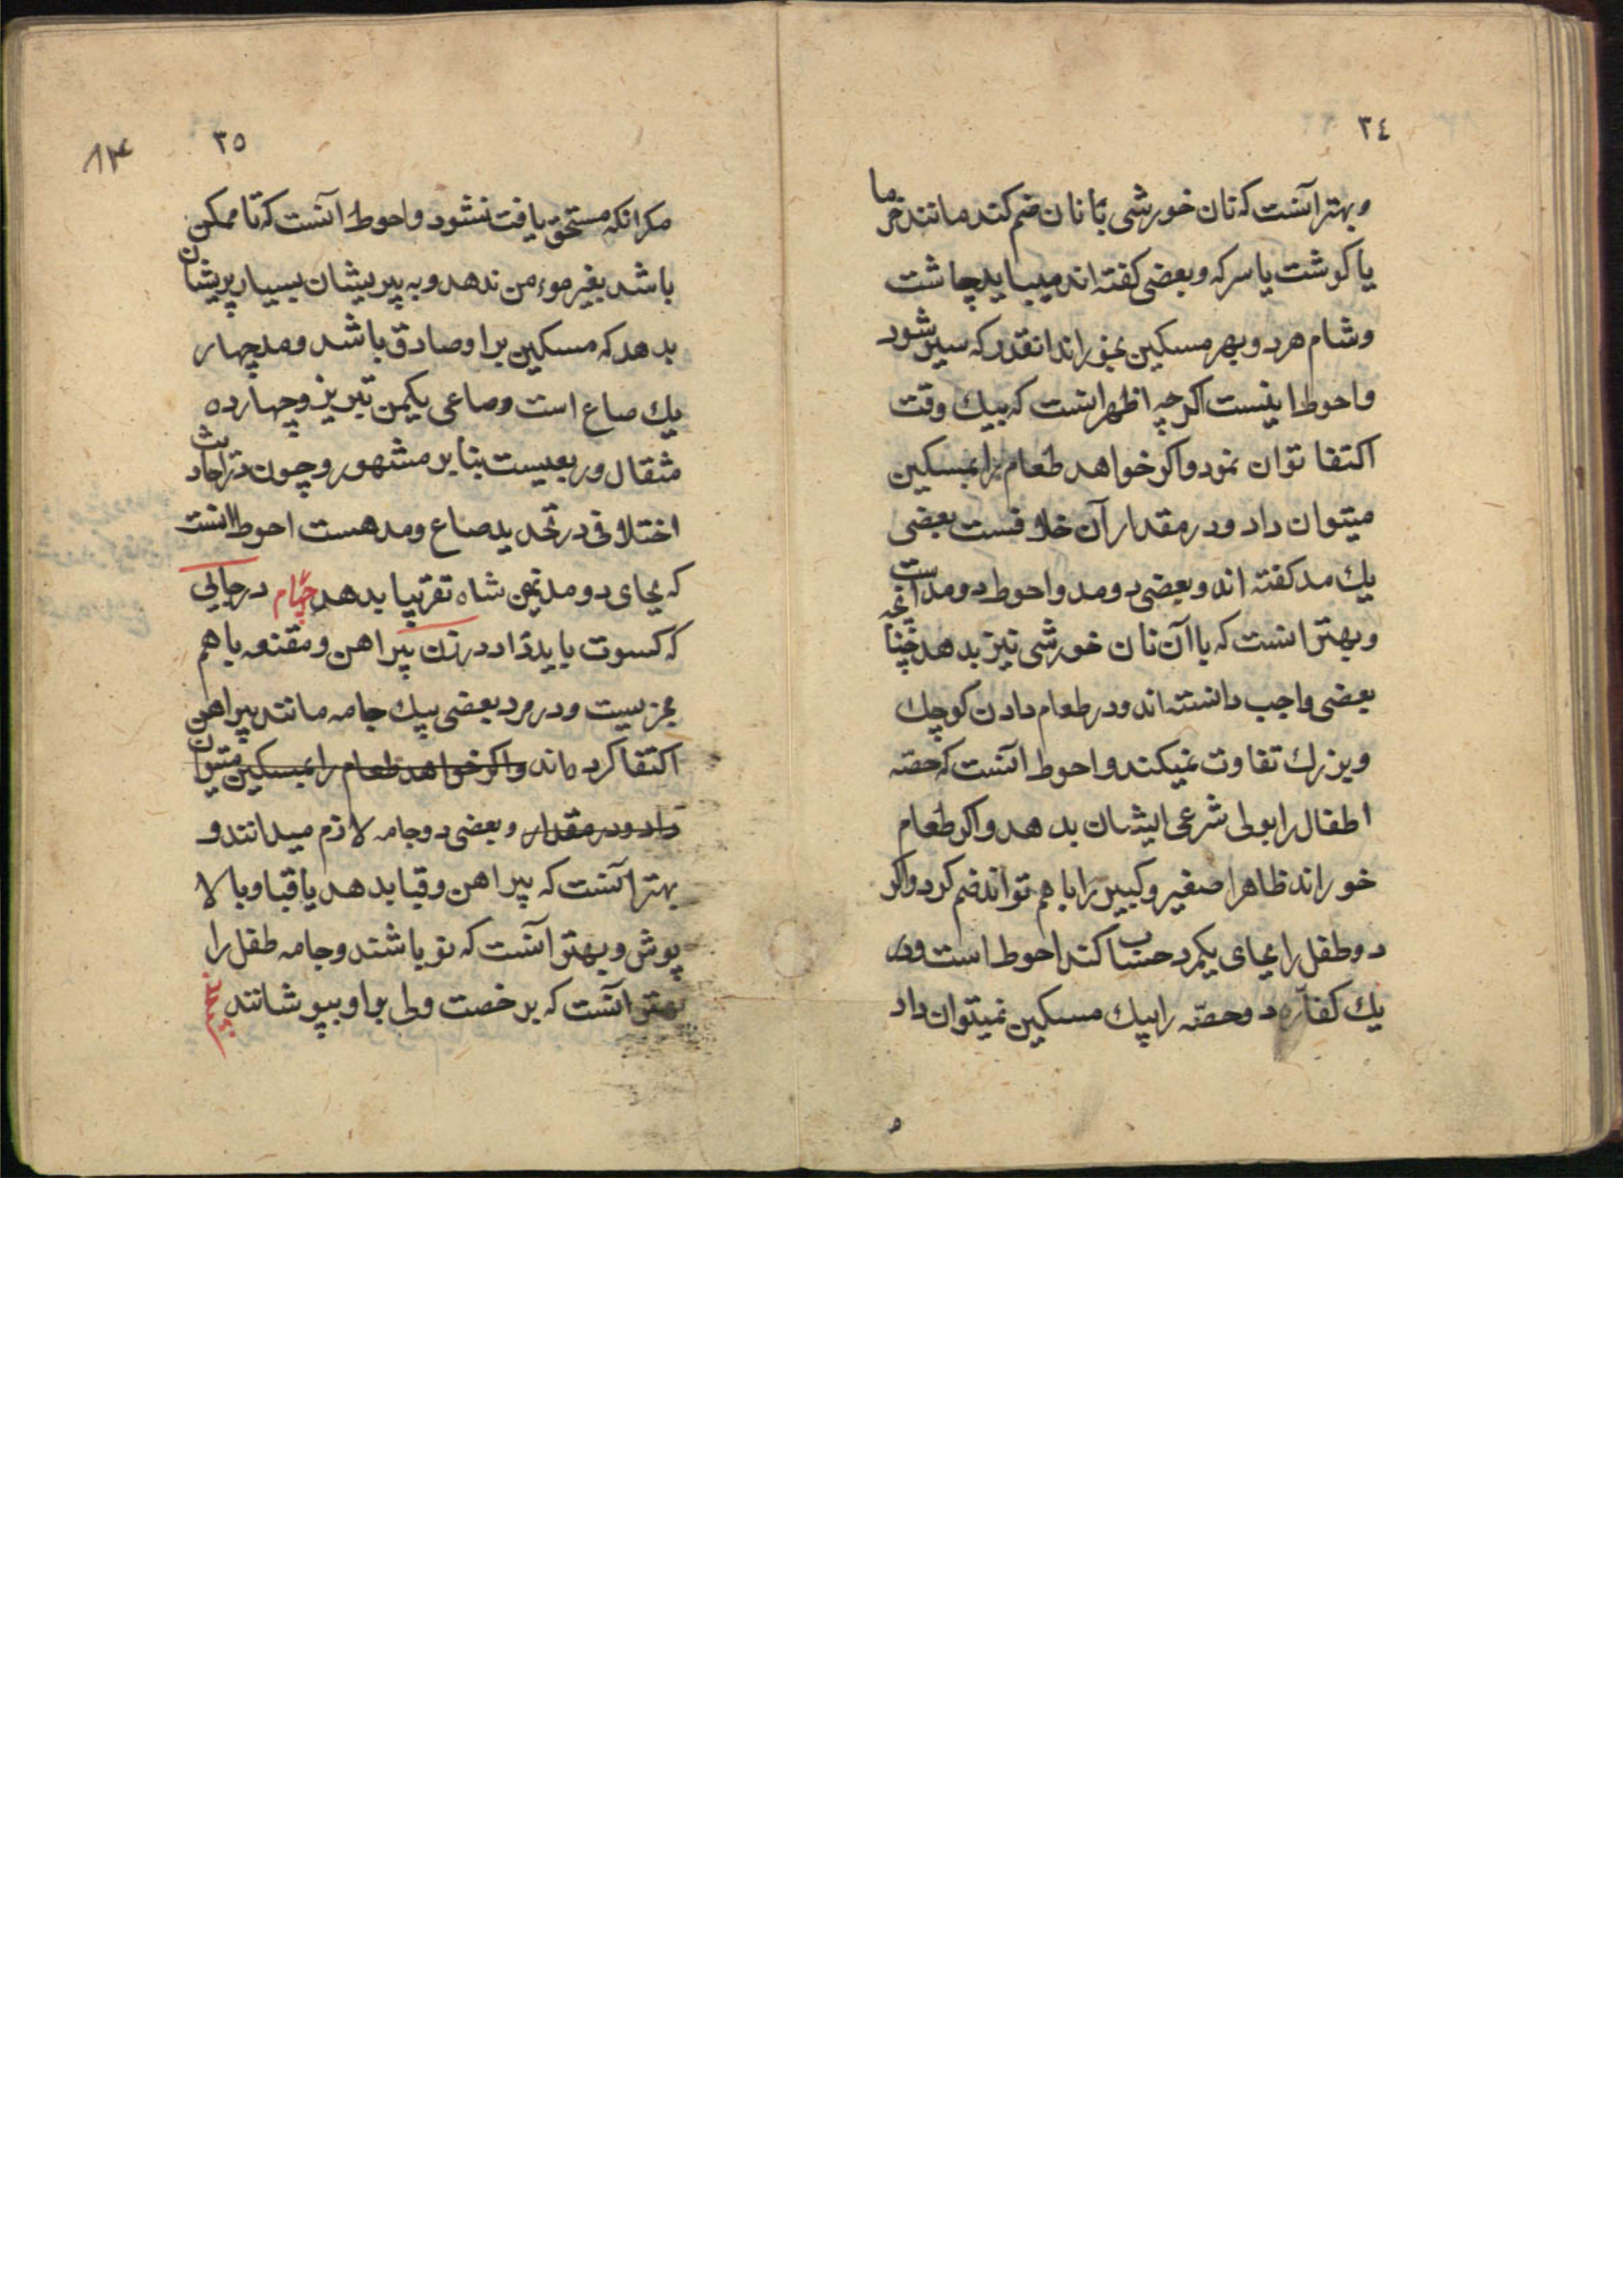 ٣٤
و بهتر آنست که نان خورشی با نان ضم کند مانند خرما
یا کوشت یا سرکه و بعضی کفته اند میباید چاشت
و شام هر دو بهر مسکین بخوراند انقدر که سیر شود
و احوط اینست اکر چه اظهر انست که بیک وقت
اکتفا توان نمود و اکر خواهد طعام را بمسکین
میتوان داد و در مقدار آن خلافست بعضی
یك مد کفته اند و بعضی دو مد و احوط دو مد است
و بهتر انست که با آن نان خورشی نیز بدهد چنانچه
بعضی واجب دانسته اند و در طعام دادن کوچك
و بزرك تفاوت نمیکند و احوط انست که حصّه
اطفال را بولی شرعی ایشان بدهد و اکر طعام
خوراند ظاهرا صغیر و کبیر را با هم تواند ضم کرد و اکر
دو طفل را بجای یکمرد حساب کند احوط است و در
یك کفاره دو حصّه را بیك مسکین نمیتوان داد
٣٥
مکر انکه مستحق یافت نشود و احوط آنست که تا ممکن
باشد بغیر موءمن ندهد و به پریشان بسیار پریشان
بدهد که مسکین بر او صادق باشد و مد چهار
یك صاع است و صاعی یکمن تبریز و چهارده
مثقال و ربعیست بنابر مشهور و چون در احادیث
اختلافی در تحدید صاع و مد هست احوط انست
که بجای دو مد نیمن شاه تقریبا بدهد چهام در جایی
که کسوت باید داد در زن پیراهن و مقنعه با هم
مجزیست و در مرد بعضی بیك جامه مانند پیراهن
اکتفا کرده اند و اکر خواهد طعام را بمسکین میتوان
داد و در مقدار و بعضی دو جامه لازم میدانند و
بهتر آنست که پیراهن و قبا بدهد یا قبا و بالا
پوش و بهتر آنست که نو باشند و جامه طفل را
بهتر آنست که برخصت ولی بر او بپوشانند